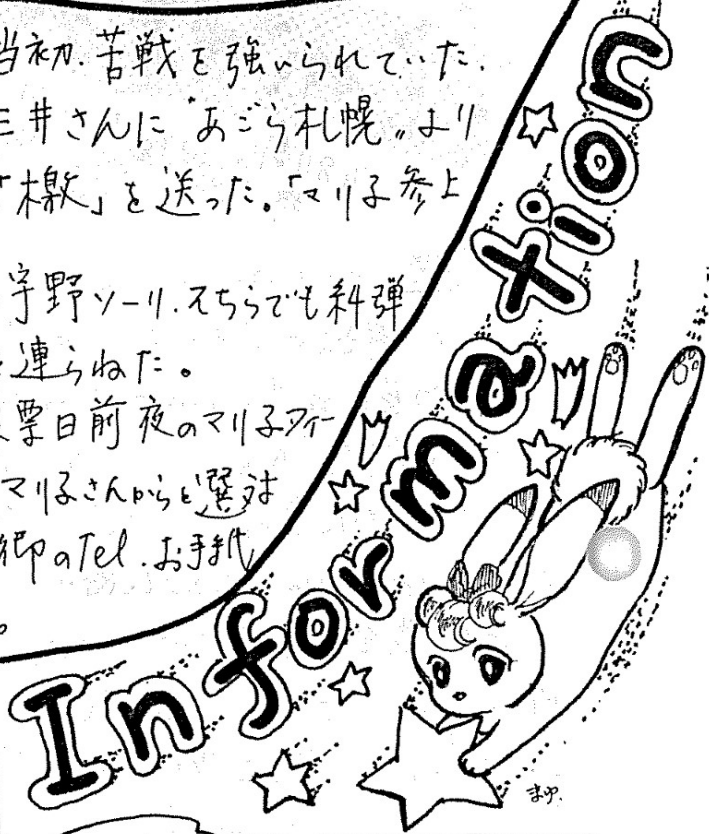 当初、苦戦を強いられていた、
三井さんに“あごら札幌”より
「檄」を送った。「マリ子参上
宇野ソーリ、そちらでも糾弾
連らねた。
票日前夜のマリ子フィー
マリ子さんからも選対
御のTel、お手紙
Information
まゆ、